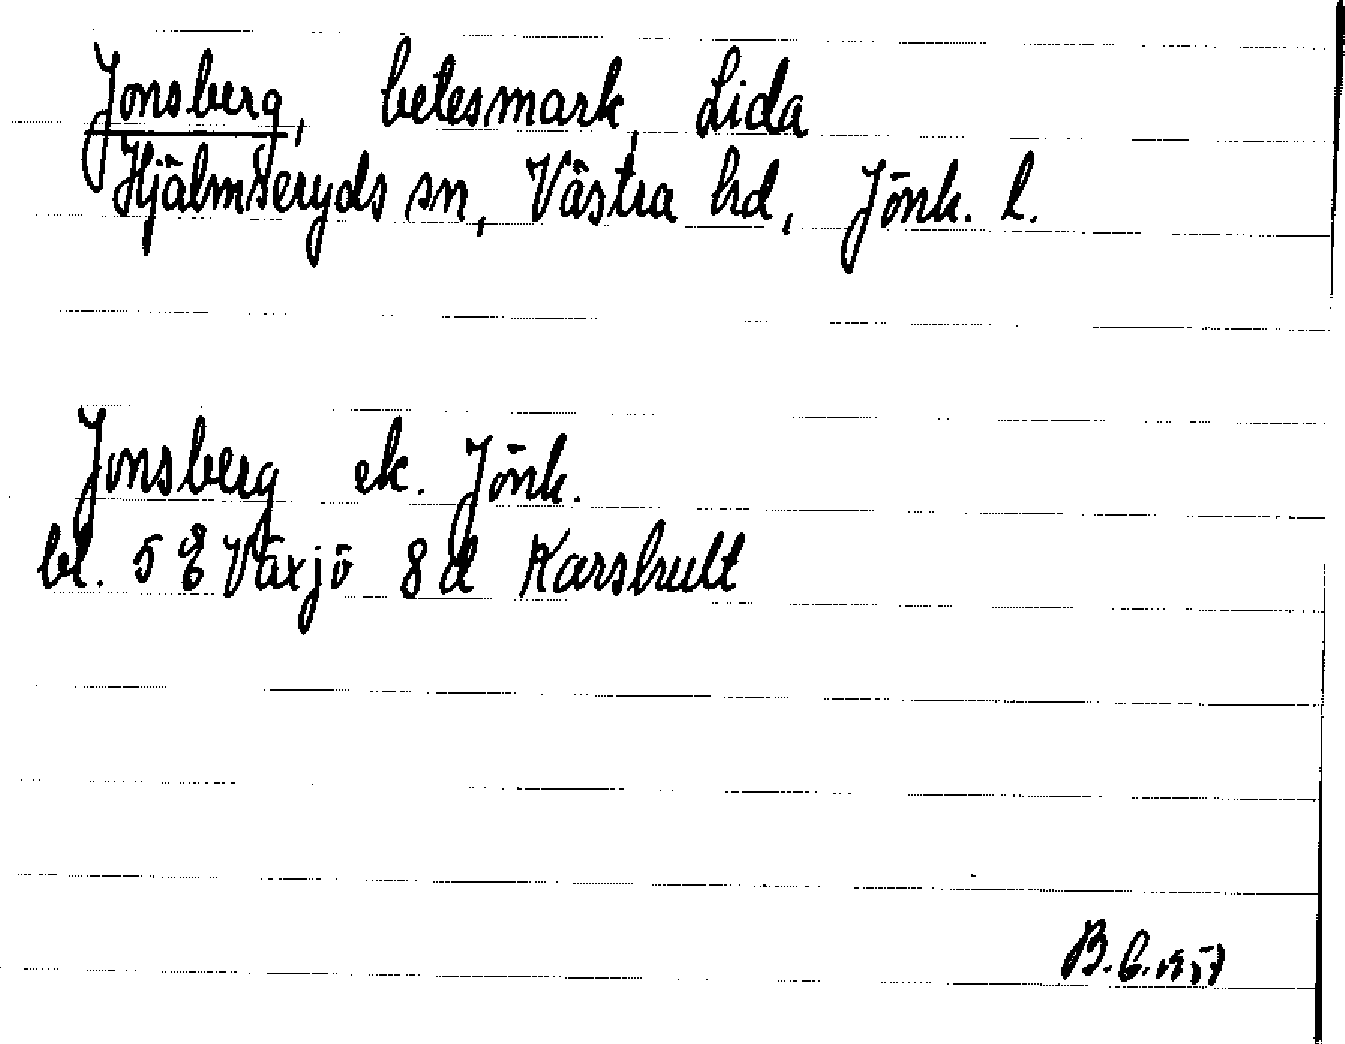 Jonsberg, betesmark, Lida
Hjälmseryds sn, Västra hd, Jönk. l.
Jonsberg ek. Jönk.
bl. 5 E Växjö 8 d Karshult
B. C. 1957